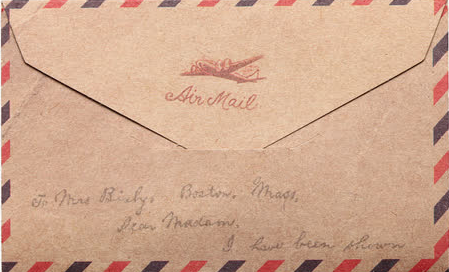 Air Mail
To Mrs Bixby, Boston, Mass,
Dear Madam,
I have been shown